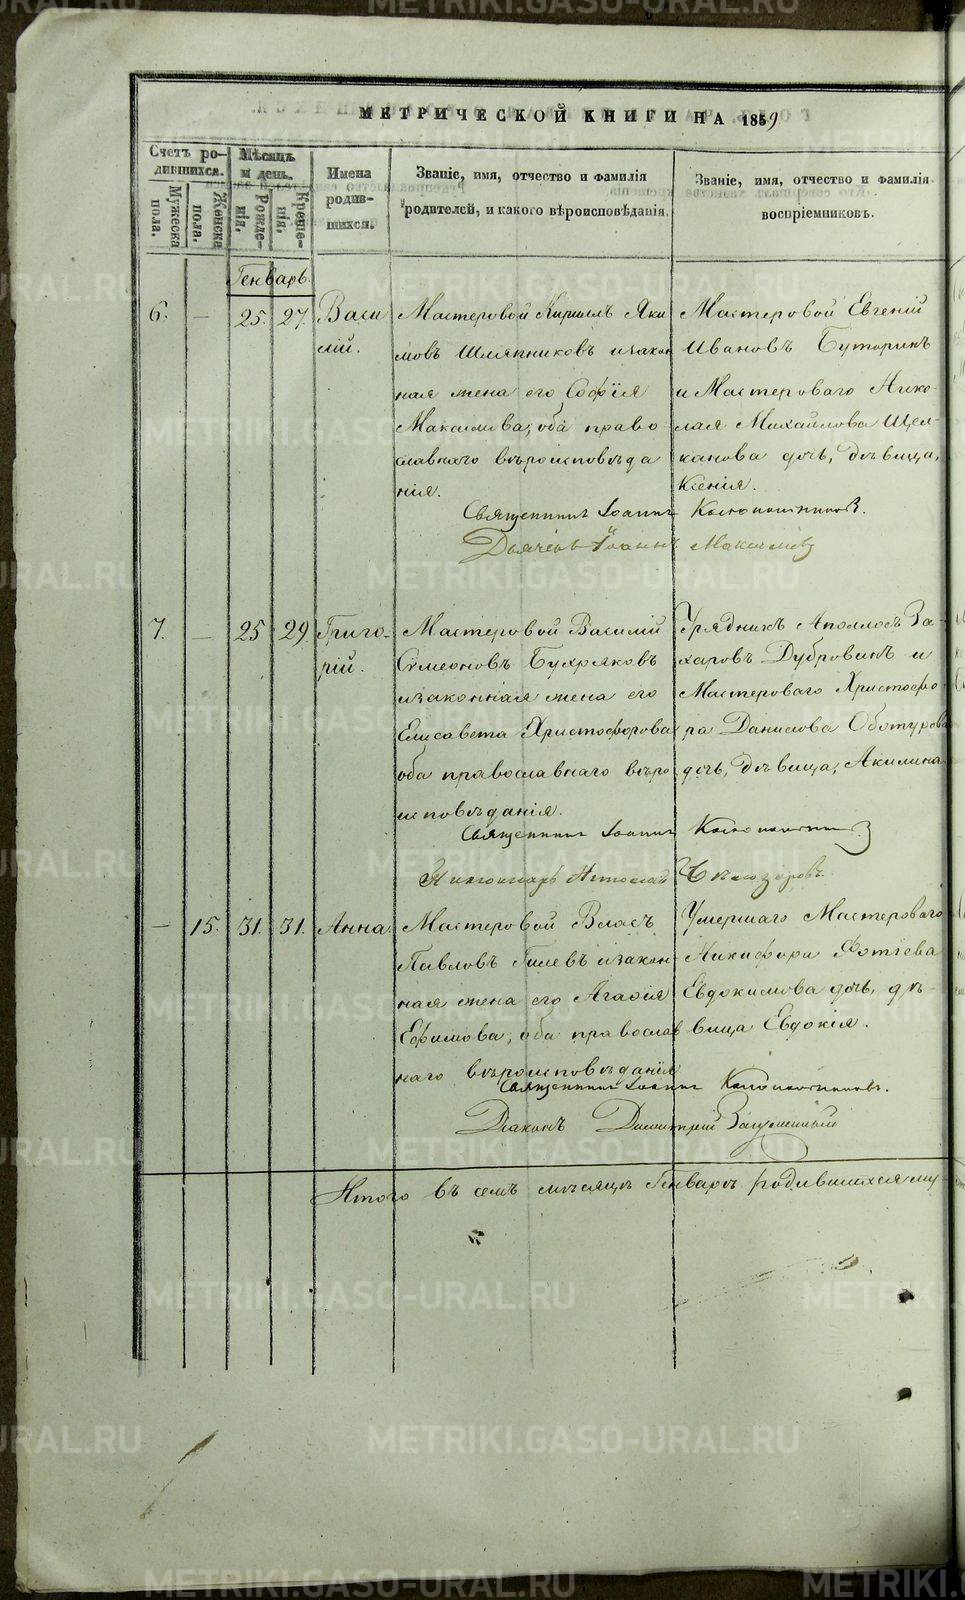 МЕТРИЧЕСКОЙ КНИГИ НА 1859
Счетъ ро-
дившихся.
Мужеска
пола.
Женска
пола.
Мѣсяцъ
и день.
Рожде-
нія.
Креще-
нія.
Имена
родив-
шихся.
Званіе, имя, отчество и фамилія
родителей, и какого вѣроисповѣданія.
Званіе, имя, отчество и фамилія
воспріемниковъ.
Генварь.
6. — 25. 27.
Васи
лій.
Мастеровой Кириллъ Яки
мовъ Шляпниковъ изакон
ная жена его Софія
Максимова, оба право-
славнаго вѣроисповѣда
нія.
Мастеровой Евгеній
Ивановъ Буторинъ
и Мастероваго Нико-
лая Михайлова Щел-
канова дочь, дѣвица,
Ксенія.
Священникъ Іоаннъ
Дьячекъ Іоаннъ
7. — 25 29.
Григо-
рій.
Мастеровой Василій
Сѵмеоновъ Бухряковъ
изаконная жена его
Елисавета Христофорова
оба православнаго вѣро
исповѣданія.
Урядникъ Аполлосъ За-
харовъ Дубровинъ и
Мастероваго Христофо-
ра Данилова Обатурова
дочь, дѣвица, Акилина
Священникъ Іоаннъ
Пономарь
— 15. 31. 31.
Анна.
Мастеровой Власъ
Павловъ Гилевъ изакон-
ная жена его Агафія
Ефимова, оба православ
наго вѣроисповѣданія
Умершаго Мастероваго
Никифора Фотіева
Евдокимова дочь, дѣ-
вица Евдокія.
Священникъ Іоаннъ
Діаконъ Димитрій
Итого въ семъ мѣсяцѣ Генварѣ родившихся му-
METRIKI.GASO-URAL.RU